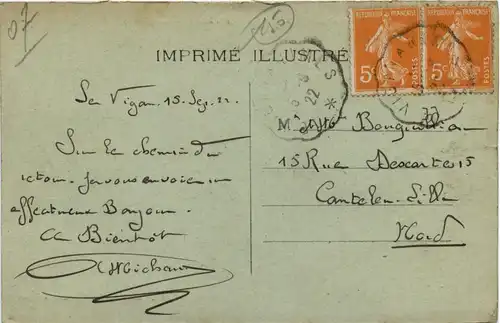 07
115
IMPRIMÉ ILLUSTRÉ
REPUBLIQUE FRANÇAISE
5c
POSTES
REPUBLIQUE FRANÇAISE
5c
POSTES
22
Le Vigan. 15. Sep. 22
Sur le chemin du
retour. Je vous envoie un
affectueux Bonjour.
A Bientôt
M
15 Rue Descartes 15
Canteleu-Lille
Nord